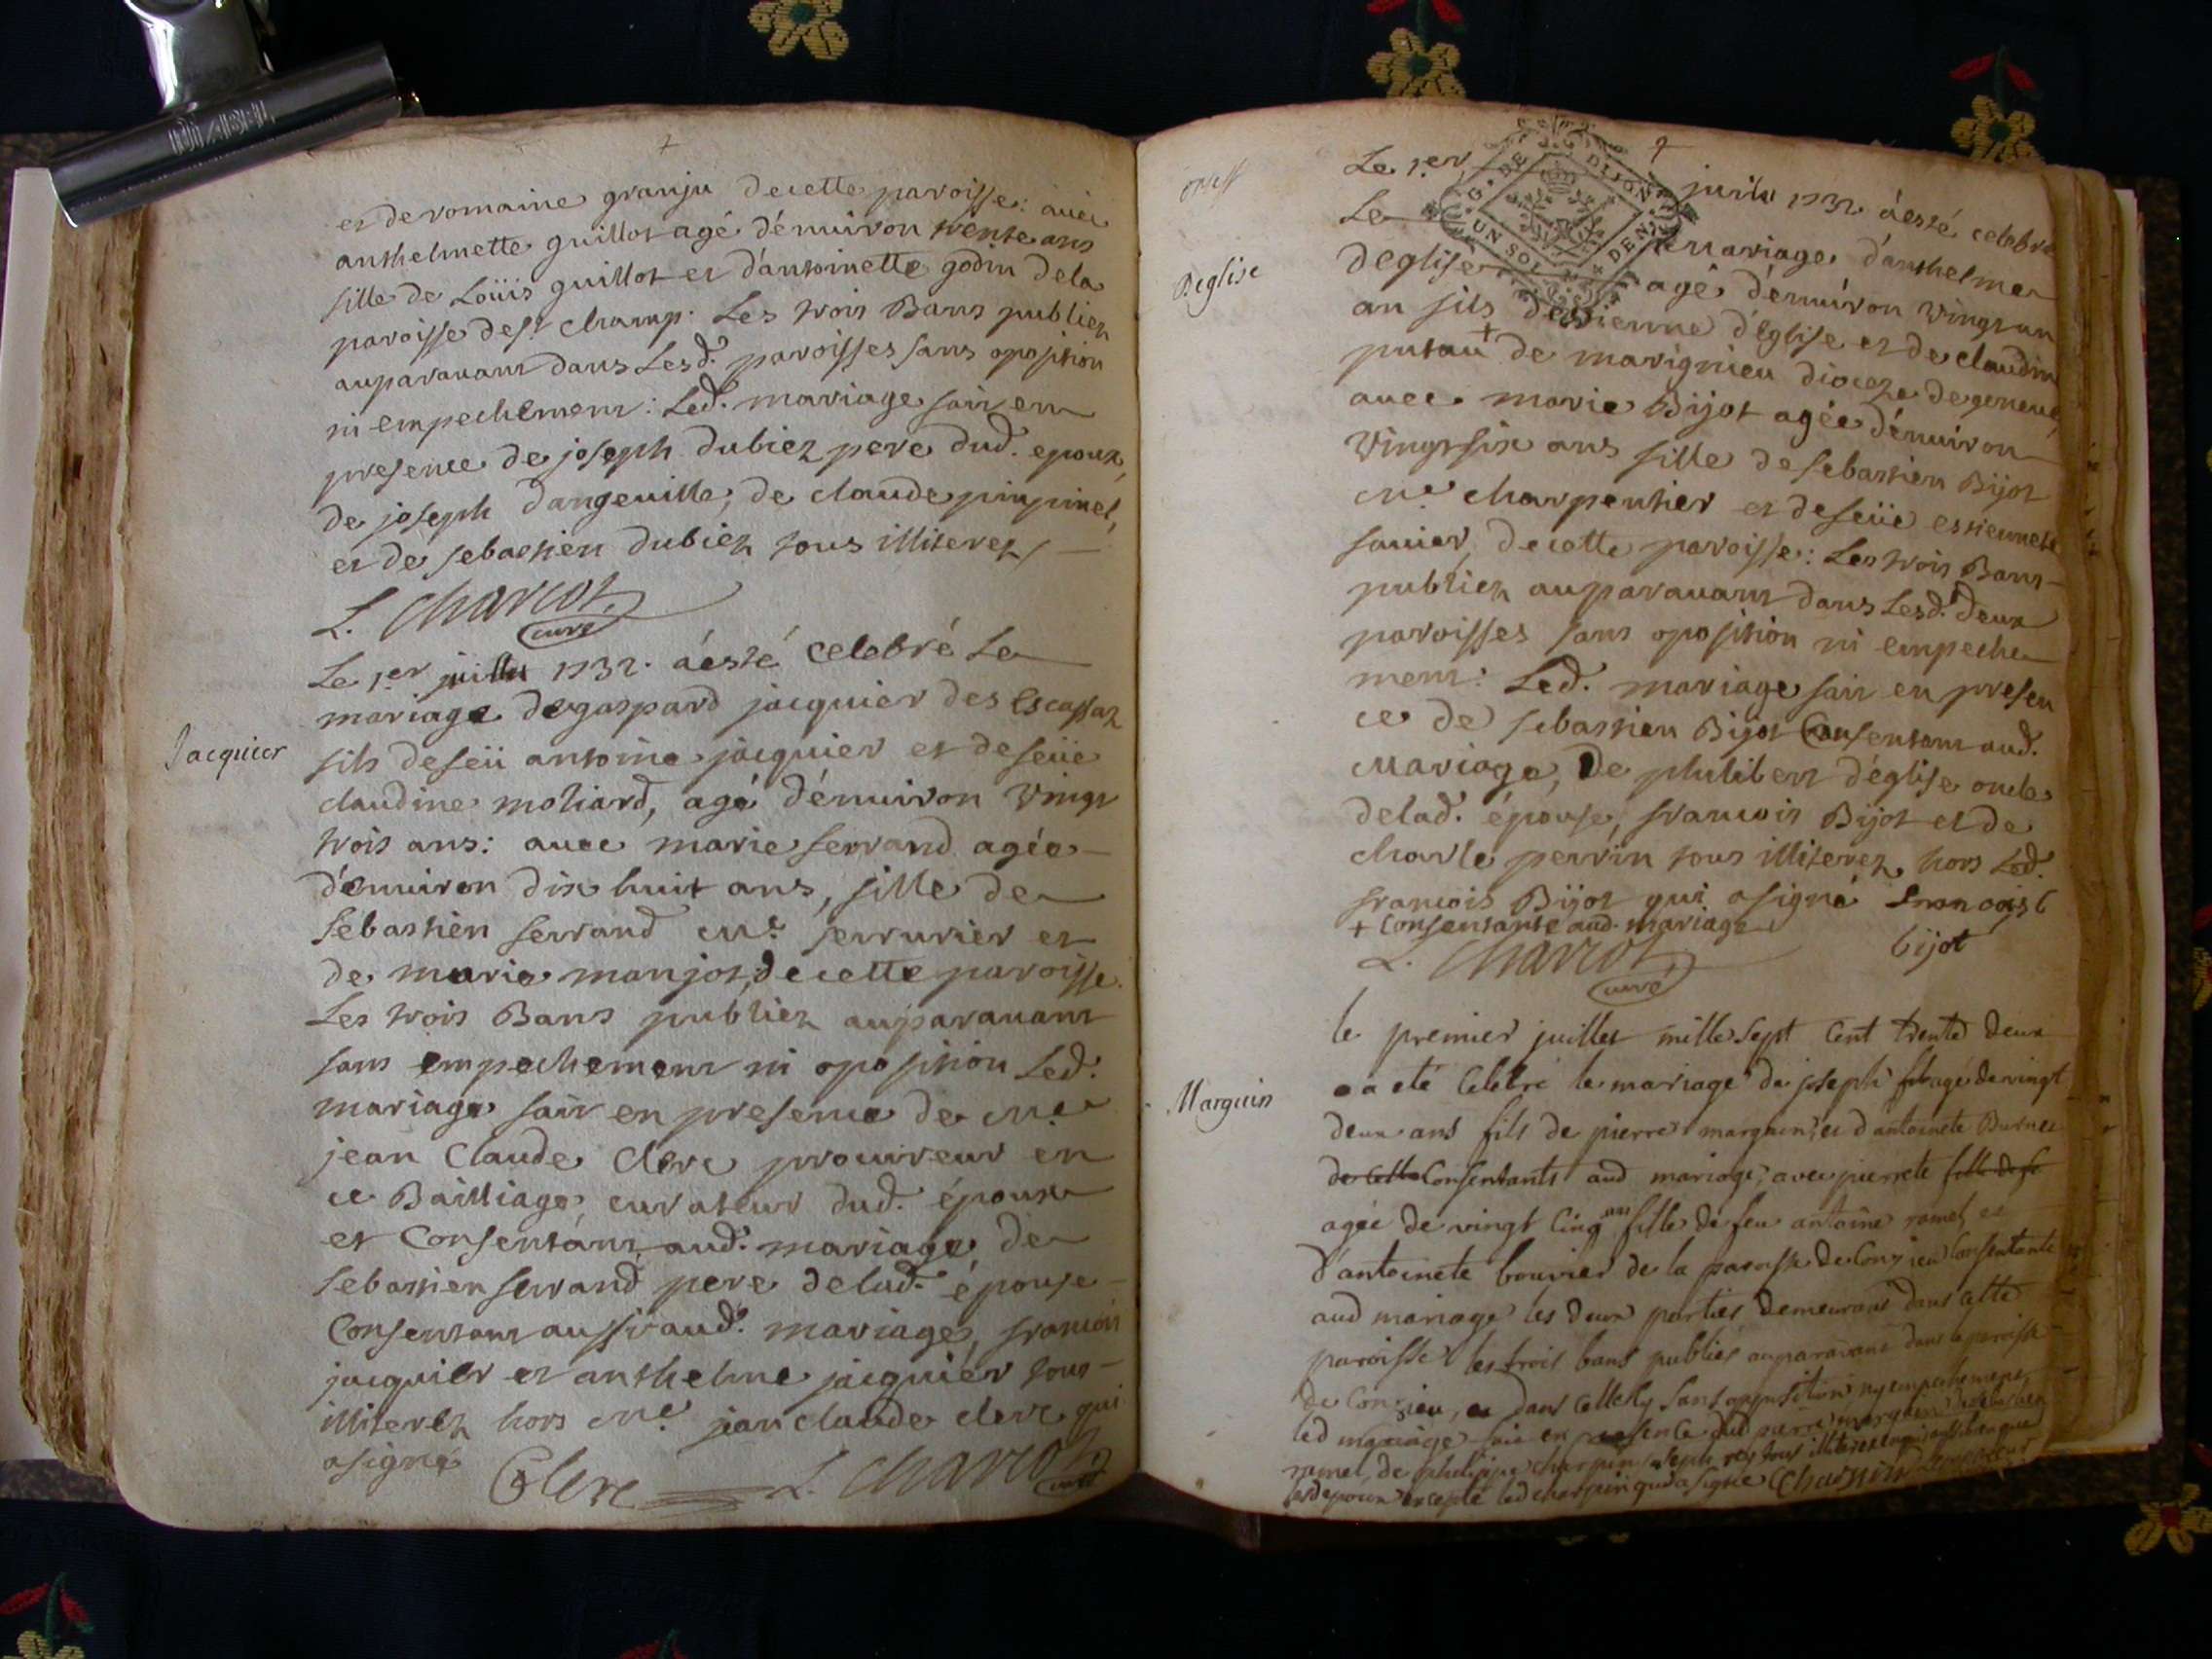 et de romaine granju de cette paroisse: avec
anthelmette guillot agé d'environ trente ans
fille de Loüis guillot et d'antoinette godin de la
paroisse de st champ. Les trois Bans publiez
auparavant dans Lesd. paroisses sans oposition
ni empechement: Led. mariage fait en
presence de joseph dubiez pere dud. epoux,
de joseph dangeville, de claude pinpinel,
et de sebastien dubiez tous illiterez
L. Charcot
curé
Jacquier
Le 1.er juillet 1732. à esté celebré Le
mariage de gaspard jacquier des Escassaz
fils de feü antoine jacquier et de feüe
claudine moliard, agé d'environ vingt
trois ans: avec marie ferrand agée
d'environ dix huit ans, fille de
sebastien ferrand me. serrurier et
de marie manjot, de cette paroisse.
Les trois Bans publiez auparavant
sans empechement ni oposition Led.
mariage fait en presence de Me
jean Claude Clerc procureur en
ce Bailliage curateur dud. époux
et Consentant aud. mariage, de
sebastien ferrand pere de lad. épouse
Consentant aussi aud. mariage, francois
jacquier et anthelme jacquier tous
illiterez hors Me jean claude clerc qui
a signé
Clerc L. Charcot
curé
Le 1.er juillet 1732 à esté celebré
Le mariage d'anthelme
G. DE DIJON
UN SOL DEN
Deglise
deglise agé d'environ vingt un
an fils d'estienne d'Eglise et de claudine
putau + de marignieu dioceze de geneve,
avec marie Bijot agée d'environ
vingt six ans fille de sebastien Bijot
Me charpentier et de feüe estiennete
favier, de cette paroisse: Les trois Bans
publiez auparavant dans Lesd. deux
paroisses sans oposition ni empeche
ment: Led. mariage fait en presen
ce de sebastien Bijot Consentant aud.
Mariage, De philibert d'église oncle
de lad. épouse, francois Bijot et de
charle perrin tous illiterez, hors Led.
francois Bijot qui a signé francois b
+ Consentante aud. mariage
bijot
L. Charcot
curé
Marguin
le premier juillet mille sept cent trente deux
a eté Celebré le mariage de joseph agé de vingt
deux ans fils de pierre marguin, et d'antoinete Burnet
de cette Consentants aud mariage, avec pierrete fille de fe
agée de vingt cinq ans fille de feu antoine ramel et
d'antoinete bouvier de la paroisse de Conzieu Consentante
aud mariage les deux parties demeurant dans cette
paroisse les trois bans publiés auparavant dans la paroisse
de Conzieu, et dans celle cy sans opposition ny empechement
led mariage fait en presence dud pierre marguin, de sebastien
ramel, de philippe charpin, joseph rey tous illiteres
lesd epoux excepté led charpin qui a signé Charpin